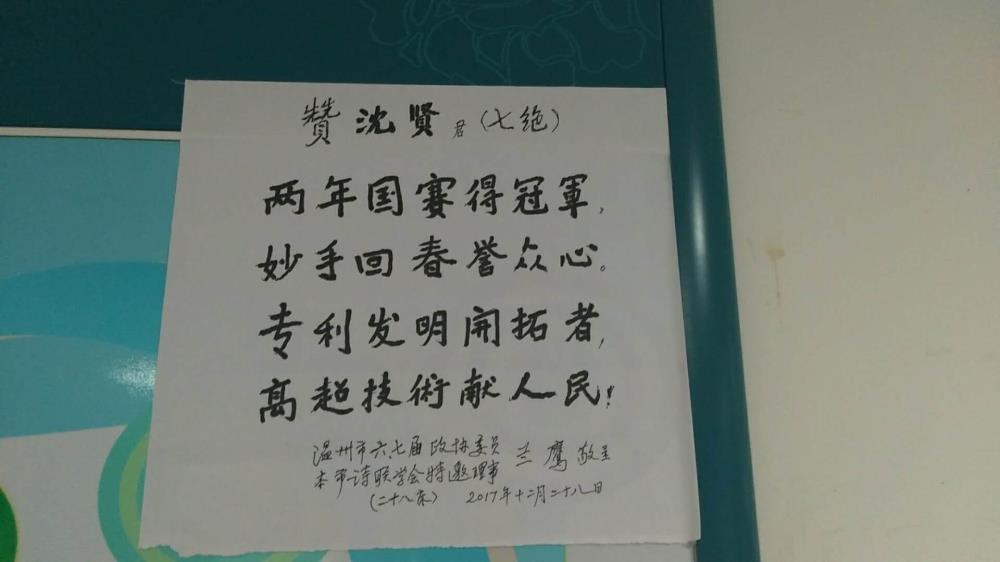 赞沈贤君（七绝）
两年国赛得冠軍,
妙手回春誉众心。
专利发明開拓者,
高超技術献人民!
温州市六七届政协委员 兰鹰敬呈
本市诗联学会特邀理事
(二十八床) 2017年十二月二十八日